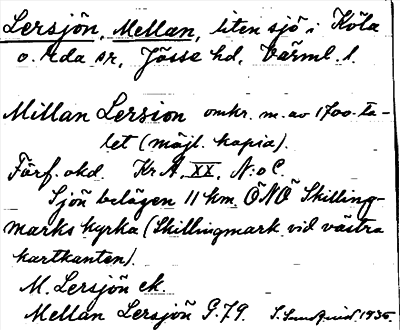 Lersjön, Mellan, liten sjö i Köla
o. Eda sr, Jösse hd, Värml. l.
Millan Lersion omkr. m. av 1700-ta-
let (möjl. kopia).
Förf. okd. Kr. A. XX. N:o C.
Sjön belägen 11 km ÖNÖ Skilling-
marks kyrka (Skillingmark vid västra
kartkanten).
M. Lersjön ek.
Mellan Lersjön G.79. S. Lundquist. 1935.